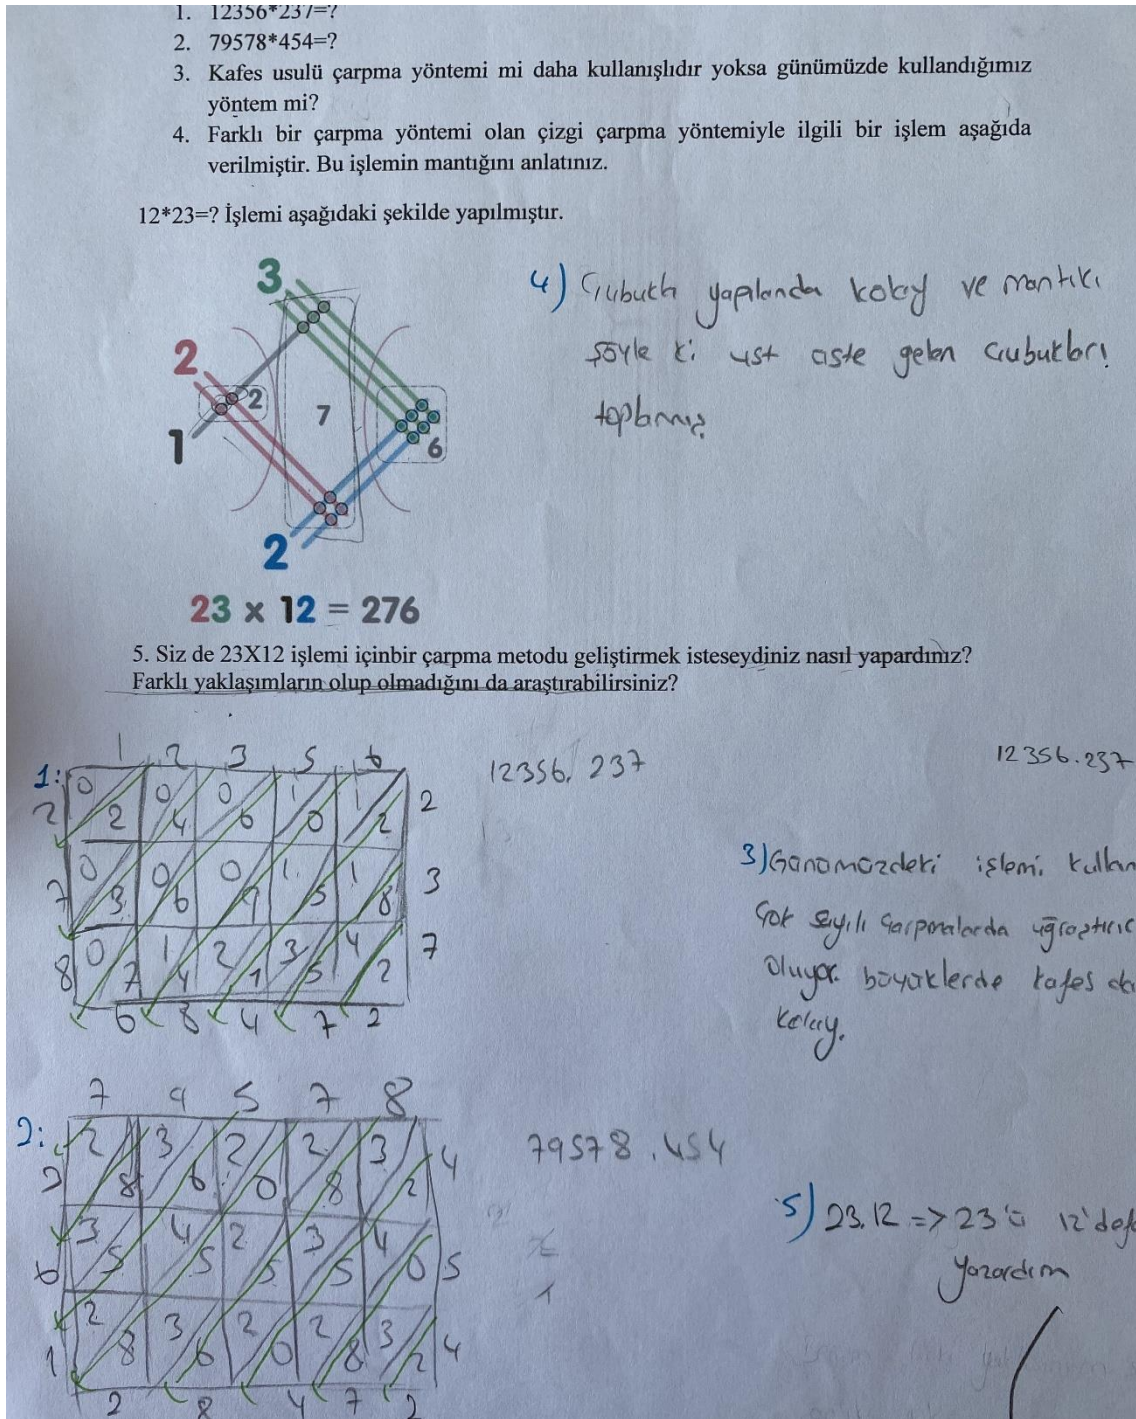 1. 12356*237=?
2. 79578*454=?
3. Kafes usulü çarpma yöntemi mi daha kullanışlıdır yoksa günümüzde kullandığımız
yöntem mi?
4. Farklı bir çarpma yöntemi olan çizgi çarpma yöntemiyle ilgili bir işlem aşağıda
verilmiştir. Bu işlemin mantığını anlatınız.
12*23=? İşlemi aşağıdaki şekilde yapılmıştır.
3
2
2
7
1
6
2
23 x 12 = 276
4) Çubuklu yapılanda kolay ve mantıkı
şöyle ki üst üste gelen çubukları
toplamış
5. Siz de 23X12 işlemi içinbir çarpma metodu geliştirmek isteseydiniz nasıl yapardınız?
Farklı yaklaşımların olup olmadığını da araştırabilirsiniz?
1:
1 2 3 5 6
0 0 0 1 1
2 2 4 6 0 2 2
0 0 0 1 1
3 6 9 5 8 3
0 1 2 3 4
8 7 4 1 5 2 7
6 8 4 7 2
12356. 237
12356.237
3) Günümüzdeki işlemi
çok sayılı çarpmalarda
oluyor. büyüklerde kafes
kolay.
2:
7 9 5 7 8
2 3 2 2 3
8 6 0 8 2 4
3 4 2 3 4
6 5 5 5 5 0 5
2 3 2 2 3
1 8 6 0 8 2 4
2 8 4 7 2
79578.454
5) 23.12 => 23'ü 12'
yazardım